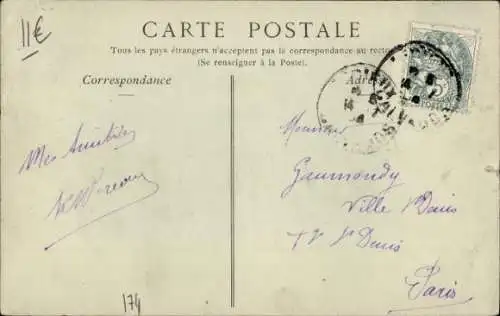 11€
CARTE POSTALE
Tous les pays étrangers n'acceptent pas la correspondance au recto
(Se renseigner à la Poste).
Correspondance
Adres
CALVADOS
Mes Amitiés
Monsieur
Gaumondy
Ville St Denis
St Denis
Paris
174